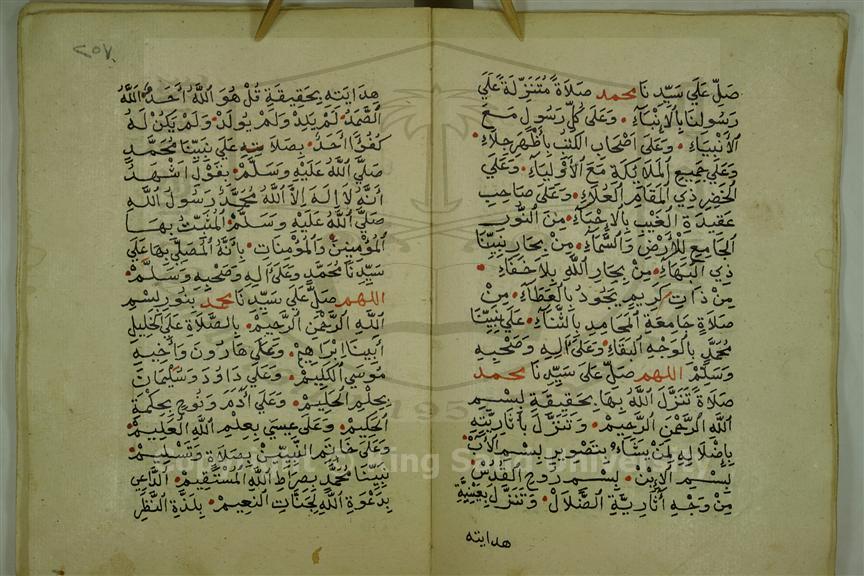 صَلِّ عَلَي سَيِّدِنَا محمد صَلَاةً مُتَنَزِّلَةً عَلَي
رَسُولِنَا بِالْاِنْبَآءِ وَعَلَي كُلِّ رَسُولٍ مَعَ
الْاَنْبِيَاءِ وَعَلَي اَصْحَابِ الْكُتُبِ بِأَظْهَرِ جِلَاءٍ
وَعَلَي جَمِيعِ الْمَلَائِكَةِ مَعَ الْاَوْلِيَاءِ وَعَلَي
الْخَضِرِ ذِي الْمَقَامِ الْعُلَاءِ وَعَلَي صَاحِبِ
عَقِيدَةِ الْغَيْبِ بِالْاِحْيَاءِ مِنَ النُّورِ
الْجَامِعِ لِلْاَرْضِ وَالسَّمَاءِ مِنْ بِحَارِ نَبِيِّنَا
ذِي الْبَهَاءِ مِنْ بِحَارِ اللّٰهِ بِلَا خَفَاءِ
مِنْ ذَاتٍ كَرِيمٍ يَجُودُ بِالْعَطَآءِ مِنْ
صَلَاةٍ جَامِعَةِ الْمَحَامِدِ بِالثَّنَآءِ عَلَي نَبِيِّنَا
مُحَمَّدٍ بِالْوَجْهِ الْبَقَاءِ وَعَلَي اٰلِهِ وَصَحْبِهِ
وَسَلِّمْ اللهم صَلِّ عَلَي سَيِّدِنَا محمد
صَلَاةً تَنَزَّلَ اللّٰهُ بِهَا بِحَقِيقَةِ بِسْمِ
اللّٰهِ الرَّحْمٰنِ الرَّحِيمِ وَتَنَزَّلَ بِأَنَارِيَّتِهِ
بِاِضْلَالِهِ لِمَنْ يَشَاءُ بِتَصْوِيرِ بِسْمِ الْأَبْ
بِسْمِ الْاِبْنْ بِسْمِ رُوحِ الْقُدُسْ
مِنْ وَجْهِ أَنَارِيَّةِ الضَّلَالْ وَتَنَزَّلَ
هدايته
٢٥٧
هِدَايَتِهِ بِحَقِيقَةِ قُلْ هُوَ اللّٰهُ اَحَدٌ اَللّٰهُ
الصَّمَدُ لَمْ يَلِدْ وَلَمْ يُولَدْ وَلَمْ يَكُنْ لَهُ
كُفُوًا اَحَدٌ بِصَلَاتِهِ عَلَي نَبِيِّنَا مُحَمَّدٍ
صَلَّي اللّٰهُ عَلَيْهِ وَسَلَّمْ بِقَوْلِ اَشْهَدُ
اَنَّهُ لَا اِلٰهَ اِلَّا اللّٰهُ مُحَمَّدٌ رَسُولُ اللّٰهِ
صَلَّي اللّٰهُ عَلَيْهِ وَسَلَّمْ الْمُثَبِّتُ بِهَا
الْمُؤْمِنِينَ وَالْمُؤْمِنَاتِ بِأَنَّهُ الْمُصَلِّي بِهَا عَلَي
سَيِّدِنَا مُحَمَّدٍ وَعَلَي اٰلِهِ وَصَحْبِهِ وَسَلَّمْ
اللهم صَلِّ عَلَي سَيِّدِنَا محمد بِنُورِ بِسْمِ
اللّٰهِ الرَّحْمٰنِ الرَّحِيمْ بِالصَّلَاةِ عَلَي الْخَلِيلِ
اَبِينَا اِبْرَاهِيمْ وَعَلَي هَارُونَ وَاَخِيهِ
مُوسَي الْكَلِيمْ وَعَلَي دَاوُدَ وَسُلَيْمَانَ
بِحِلْمِ الْحَلِيمْ وَعَلَي اٰدَمَ وَنُوحٍ بِحِكْمَةِ
الْحَكِيمْ وَعَلَي عِيسَي بِعِلْمِ اللّٰهِ الْعَلِيمْ
وَعَلَي خَاتَمِ النَّبِيِّينَ بِصَلَاةٍ وَتَسْلِيمْ
نَبِيِّنَا مُحَمَّدٍ بِصِرَاطِ اللّٰهِ الْمُسْتَقِيمْ الدَّاعِي
بِدَعْوَةِ اللّٰهِ لِجَنَّاتِ النَّعِيمْ بِلَذَّةِ النَّظَرِ
King Saud University
195